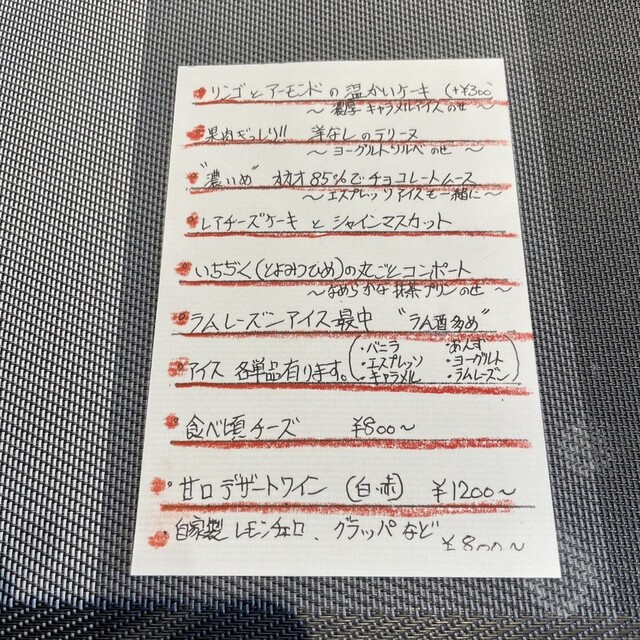 ・リンゴとアーモンドの温かいケーキ (+¥300)
～濃厚キャラメルアイスのせ～
・果肉ぎっしり!! 洋なしのテリーヌ
～ヨーグルトソルベのせ～
・"濃いめ" カカオ85%でチョコレートムース
～エスプレッソアイスも一緒に～
・レアチーズケーキとシャインマスカット
・いちぢく(とよみつひめ)の丸ごとコンポート
～なめらかな抹茶プリンのせ～
・ラムレーズンアイス最中 "ラム酒多め"
・アイス 各単品有ります。
(・バニラ ・あんず
・エスプレッソ ・ヨーグルト
・キャラメル ・ラムレーズン)
・食べ頃チーズ ¥800～
・甘口デザートワイン (白・赤) ¥1200～
・自家製レモンチェロ、グラッパなど
¥800～